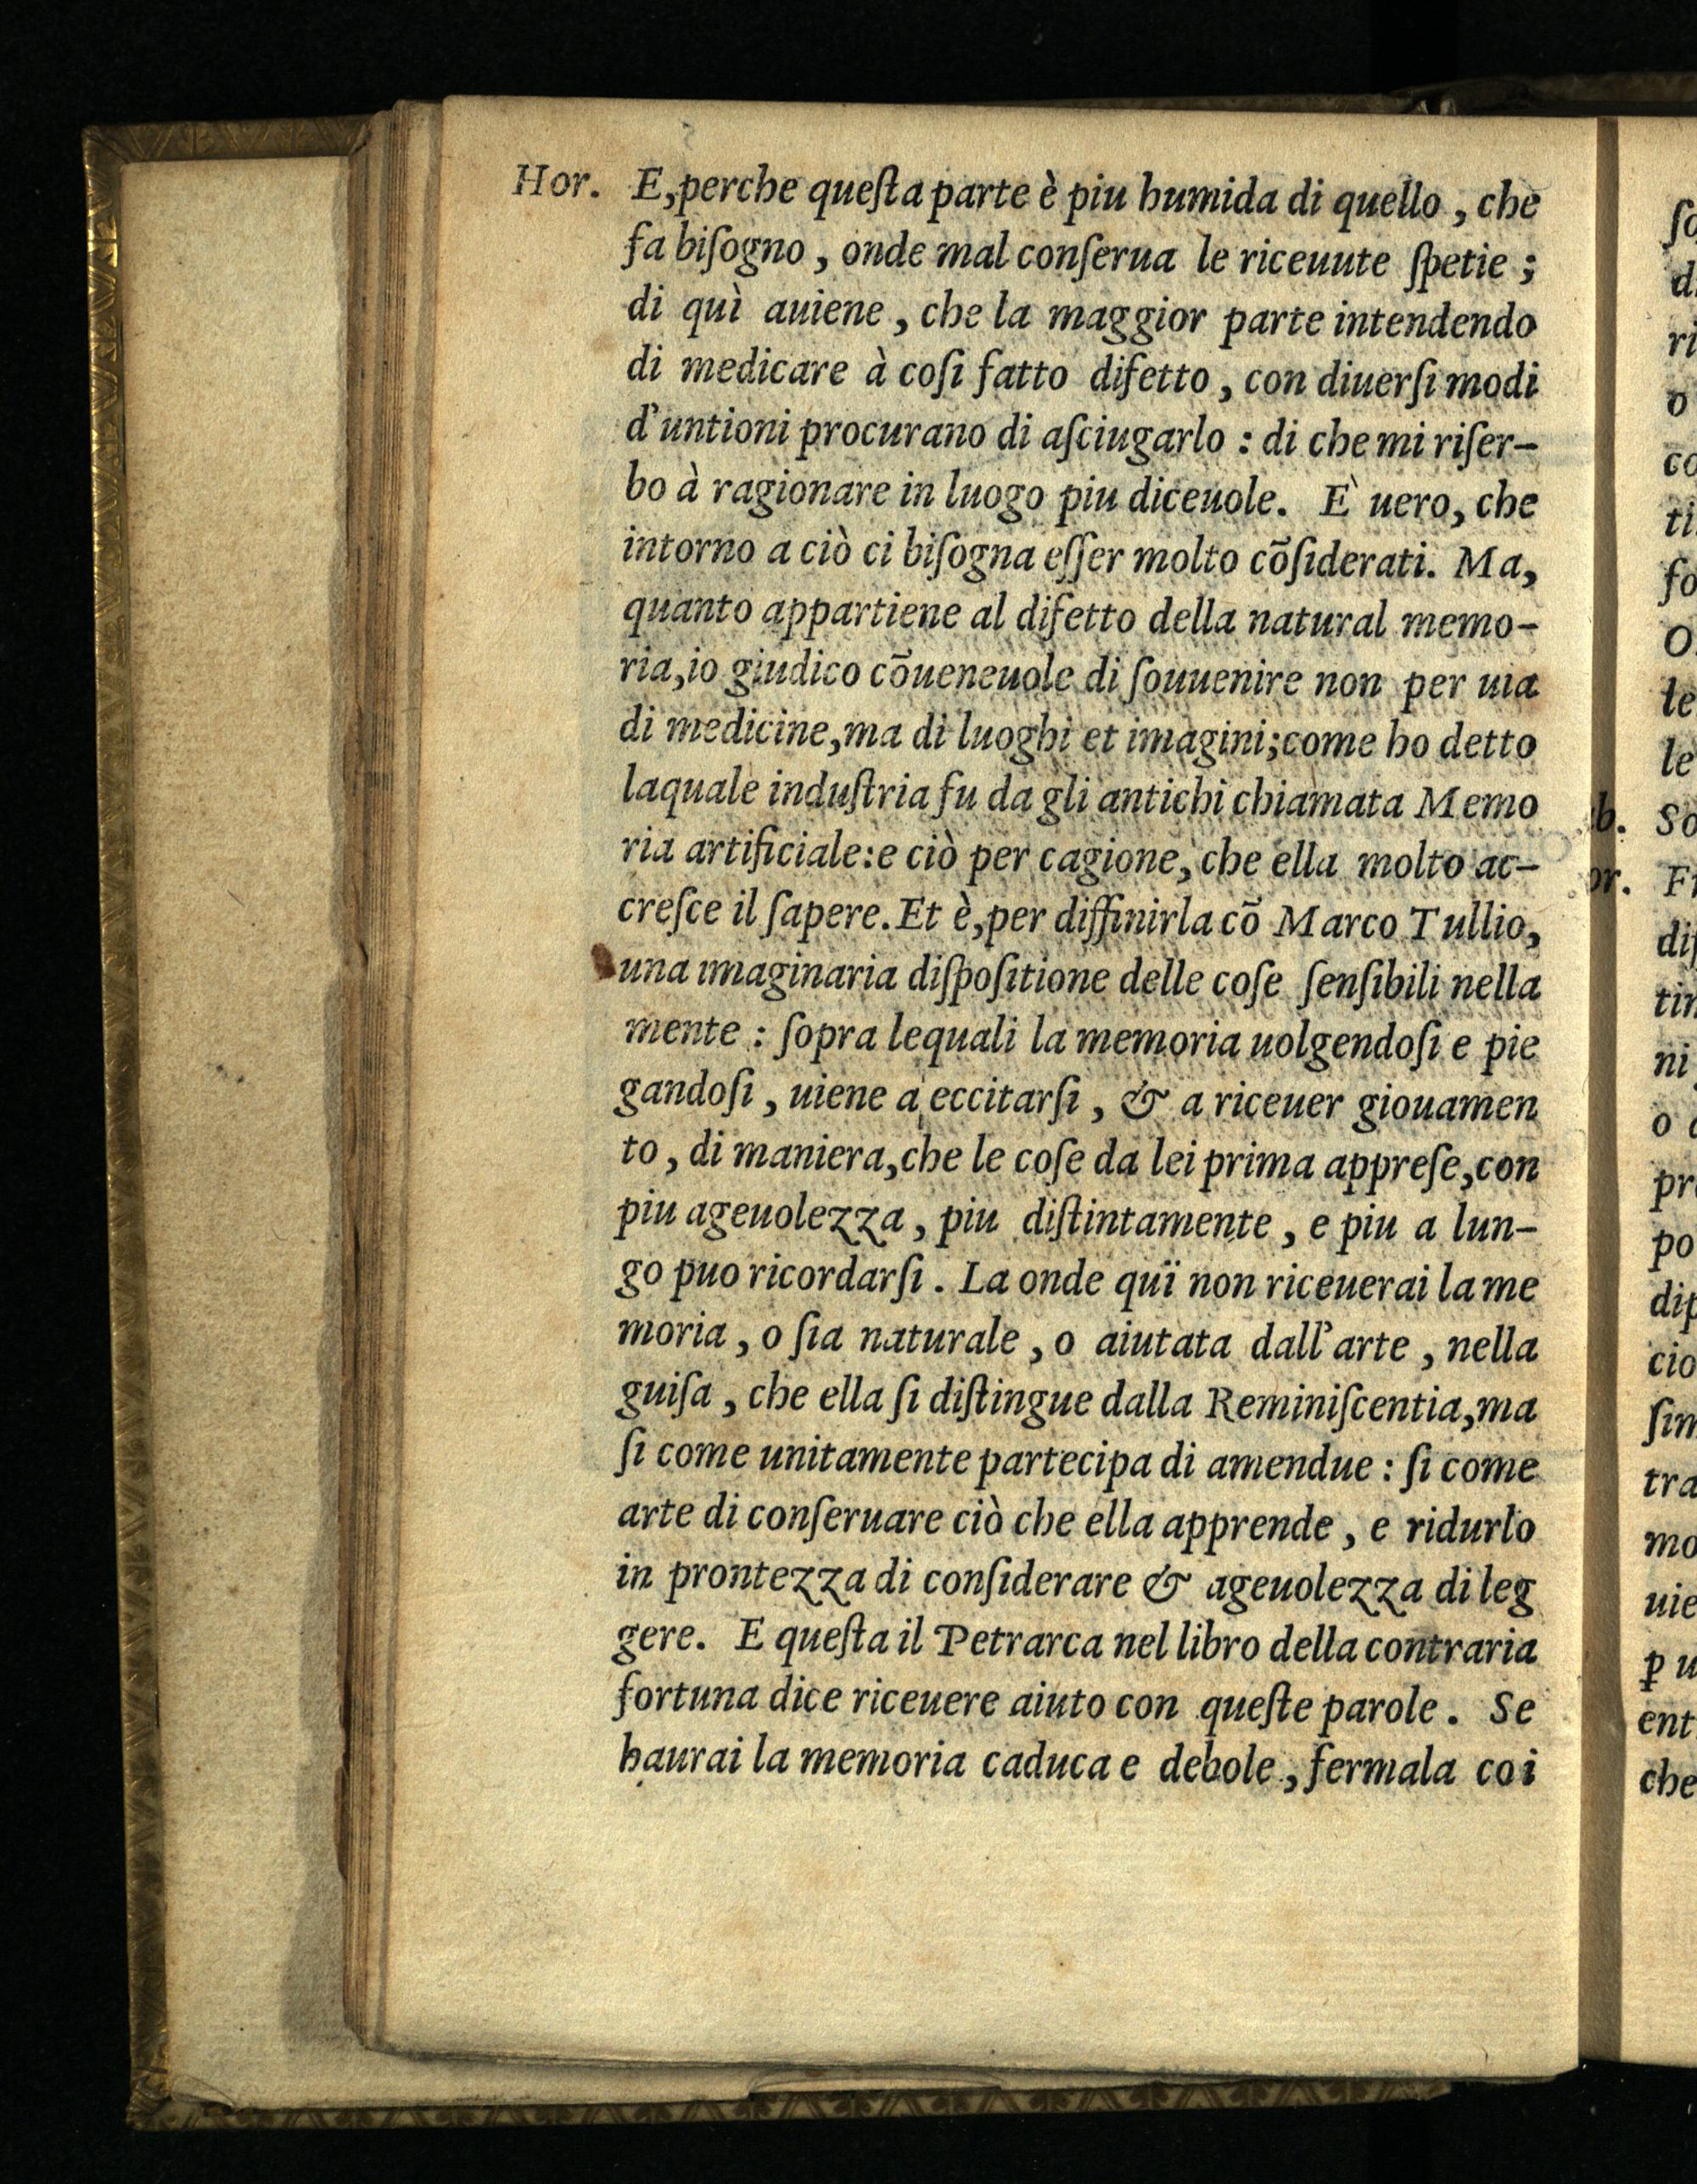 Hor. E,perche queſta parte è piu humida di quello , che
fa biſogno , onde mal conſerua le riceuute ſpetie ;
di quì auiene , che la maggior parte intendendo
di medicare à coſi fatto difetto , con diuerſi modi
d'untioni procurano di aſciugarlo : di che mi riſer-
bo à ragionare in luogo piu diceuole. E` uero, che
intorno a ciò ci biſogna eſſer molto cōſiderati. Ma,
quanto appartiene al difetto della natural memo-
ria,io giudico cōueneuole di ſouuenire non per uia
di medicine,ma di luoghi et imagini;come ho detto
laquale induſtria fu da gli antichi chiamata Memo
ria artificiale:e ciò per cagione, che ella molto ac-
creſce il ſapere.Et è,per diffinirla cō Marco Tullio,
una imaginaria diſpoſitione delle coſe ſenſibili nella
mente : ſopra lequali la memoria uolgendoſi e pie
gandoſi , uiene a eccitarſi , & a riceuer giouamen
to , di maniera,che le coſe da lei prima appreſe,con
piu ageuolezza , piu diſtintamente , e piu a lun-
go puo ricordarſi . La onde quï non riceuerai la me
moria , o ſia naturale , o aiutata dall'arte , nella
guiſa , che ella ſi diſtingue dalla Reminiſcentia,ma
ſi come unitamente partecipa di amendue : ſi come
arte di conſeruare ciò che ella apprende , e ridurlo
in prontezza di conſiderare & ageuolezza di leg
gere. E queſta il Petrarca nel libro della contraria
fortuna dice riceuere aiuto con queſte parole . Se
haurai la memoria caduca e debole , fermala coi
ſo
d
ri
o
co
ti
fo
O
le
le
b. So
or. F
diſ
tin
ni
o
pr
po
dip
cio
ſim
tra
mo
uie
ꝑ u
ent
che